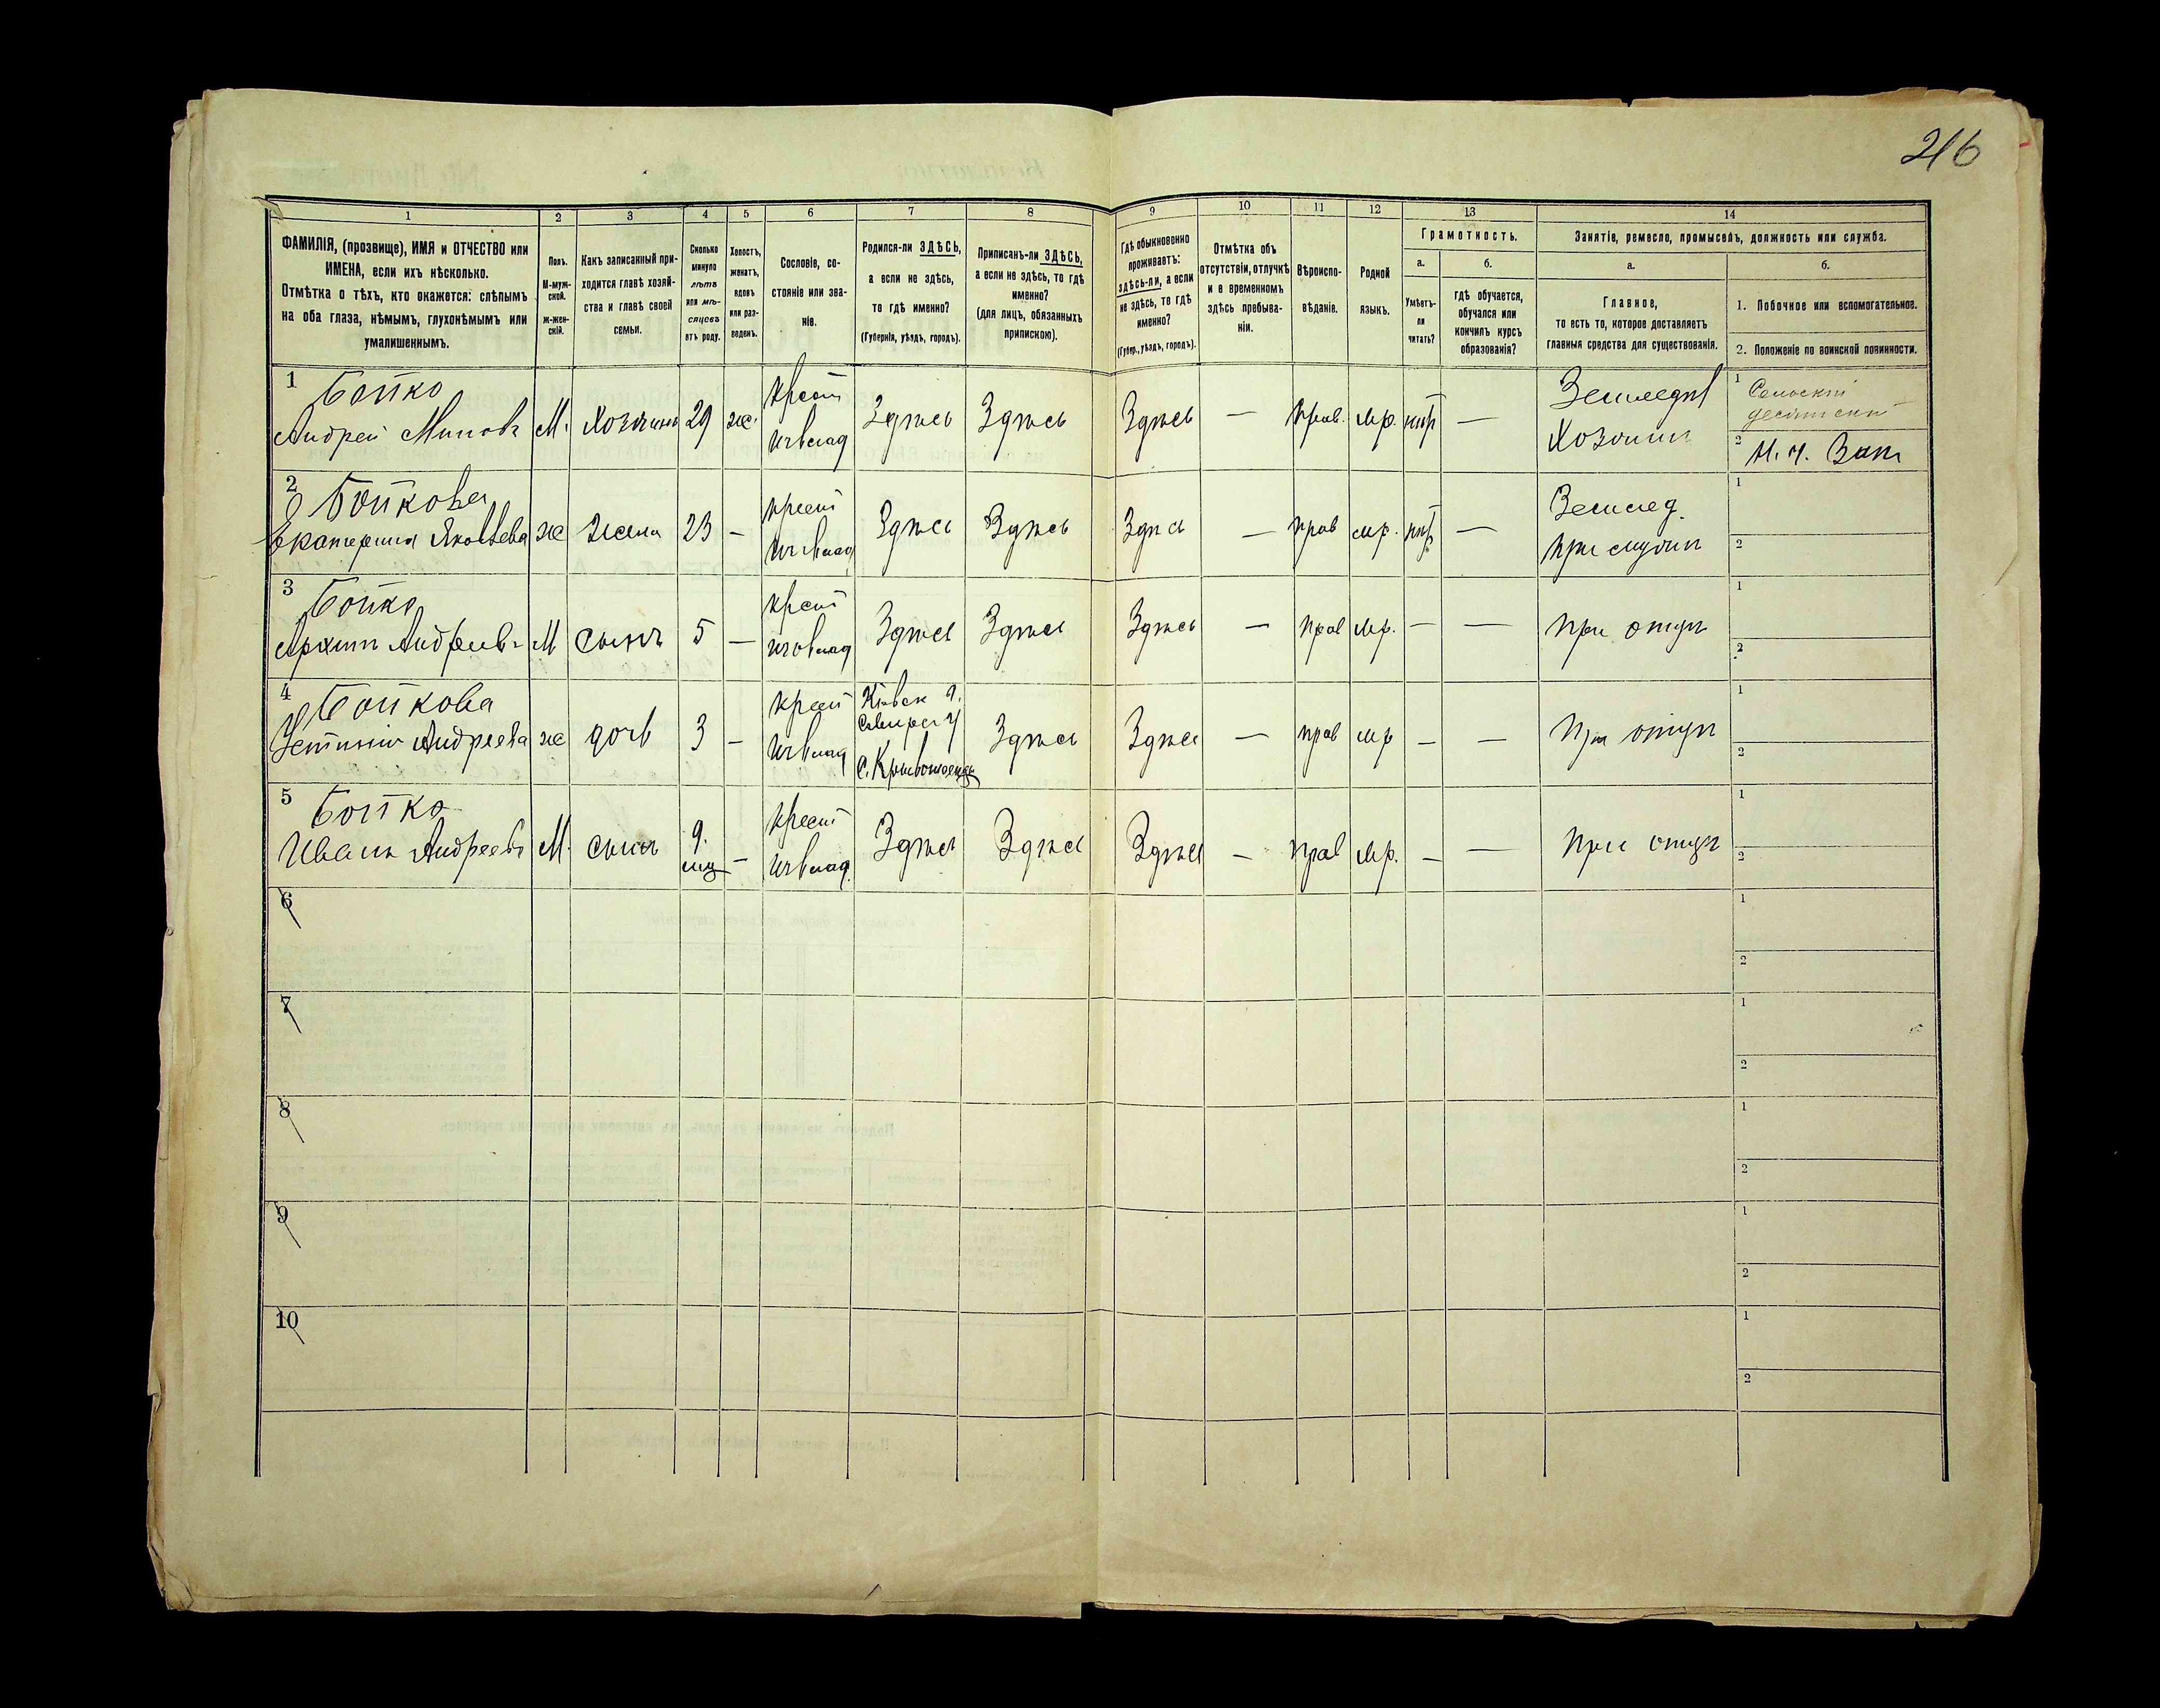 216
1 2 3 4 5 6 7 8 9 10 11 12 13 14
ФАМИЛІЯ, (прозвище), ИМЯ и ОТЧЕСТВО или
ИМЕНА, если ихъ нѣсколько.
Отмѣтка о тѣхъ, кто окажется: слѣпымъ
на оба глаза, нѣмымъ, глухонѣмымъ или
умалишеннымъ.
Полъ.
М-муж-
ской.
ж-жен-
скій.
Какъ записанный при-
ходится главѣ хозяй-
ства и главѣ своей
семьи.
Сколько
минуло
лѣтъ
или мѣ-
сяцевъ
отъ роду.
Холостъ,
женатъ,
вдовъ
или раз-
веденъ.
Сословіе, со-
стояніе или зва-
ніе.
Родился-ли ЗДѢСЬ,
а если не здѣсь,
то гдѣ именно?
(Губернія, уѣздъ, городъ).
Приписанъ-ли ЗДѢСЬ,
а если не здѣсь, то гдѣ
именно?
(для лицъ, обязанныхъ
припискою).
Гдѣ обыкновенно
проживаетъ:
здѣсь-ли, а если
не здѣсь, то гдѣ
именно?
(Губер., уѣздъ, городъ).
Отмѣтка объ
отсутствіи, отлучкѣ
и о временномъ
здѣсь пребыва-
ніи.
Вѣроиспо-
вѣданіе.
Родной
языкъ.
Грамотность.
а.
Умѣетъ-
ли
читать?
б.
гдѣ обучается,
обучался или
кончилъ курсъ
образованія?
Занятіе, ремесло, промыселъ, должность или служба.
а.
Главное,
то есть то, которое доставляетъ
главныя средства для существованія.
б.
1. Побочное или вспомогательное.
2. Положеніе по воинской повинности.
1 Бойко
Андрей М. Хозяинъ 29 ж. крест
Здѣсь Здѣсь Здѣсь — прав. мр. —
Хозяинъ
1 Сельскій
десятскій
2
2 Бойкова
Екатерина Яковлева ж жена 23 — крест
Здѣсь Здѣсь Здѣсь — прав мр. —
Землед.
при мужѣ
1
2
3 Бойко
Архипъ Андреевъ М сынъ 5 — крест
Здѣсь Здѣсь Здѣсь — прав мр. — —
при отцѣ
1
2
4 Бойкова
Устинія Андреева ж дочь 3 — крест
Кіевск г.
Сквирск у
Здѣсь Здѣсь — прав мр — —
при отцѣ
1
2
5 Бойко
Иванъ Андреевъ М. сынъ 9. мц — крест
Здѣсь Здѣсь Здѣсь — прав мр. — —
при отцѣ
1
2
6
1
2
7
1
2
8
1
2
9
1
2
10
1
2